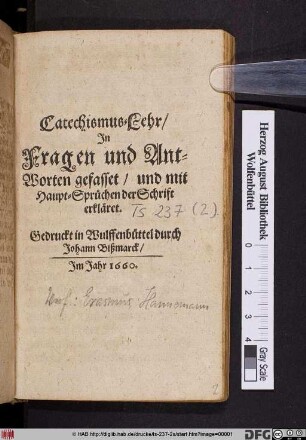 Catechismus-Lehr/
In
Fragen und Ant-
Worten gefasset / und mit
Haupt-Sprüchen der Schrift
erkläret.
Ts 237 (2).
Gedruckt in Wulffenbüttel durch
Johann Bißmarck/
Im Jahr 1660.
Verf.: Erasmus Hannemann
2
Herzog August Bibliothek
Wolfenbüttel
Gray Scale
© HAB http://diglib.hab.de/drucke/ts-237-2s/start.htm?image=00001
DFG